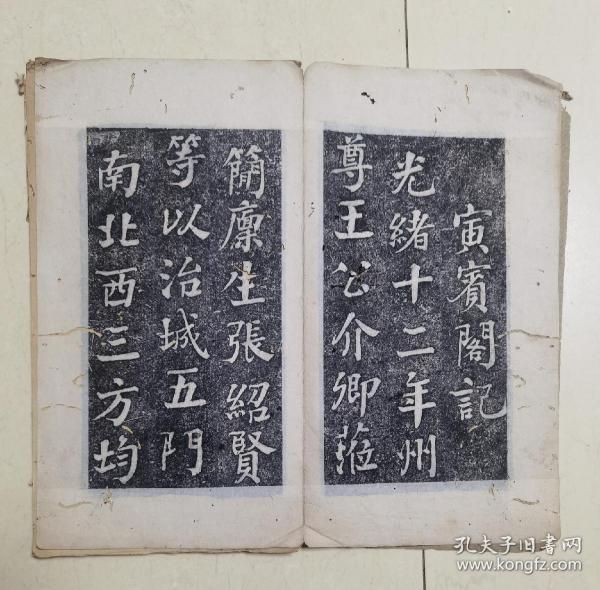 寅賓閣記
光緒十二年州
尊王公介卿蒞
簡廩生張紹賢
等以治城五門
南北西三方均
孔夫子旧書网
www.kongfz.com